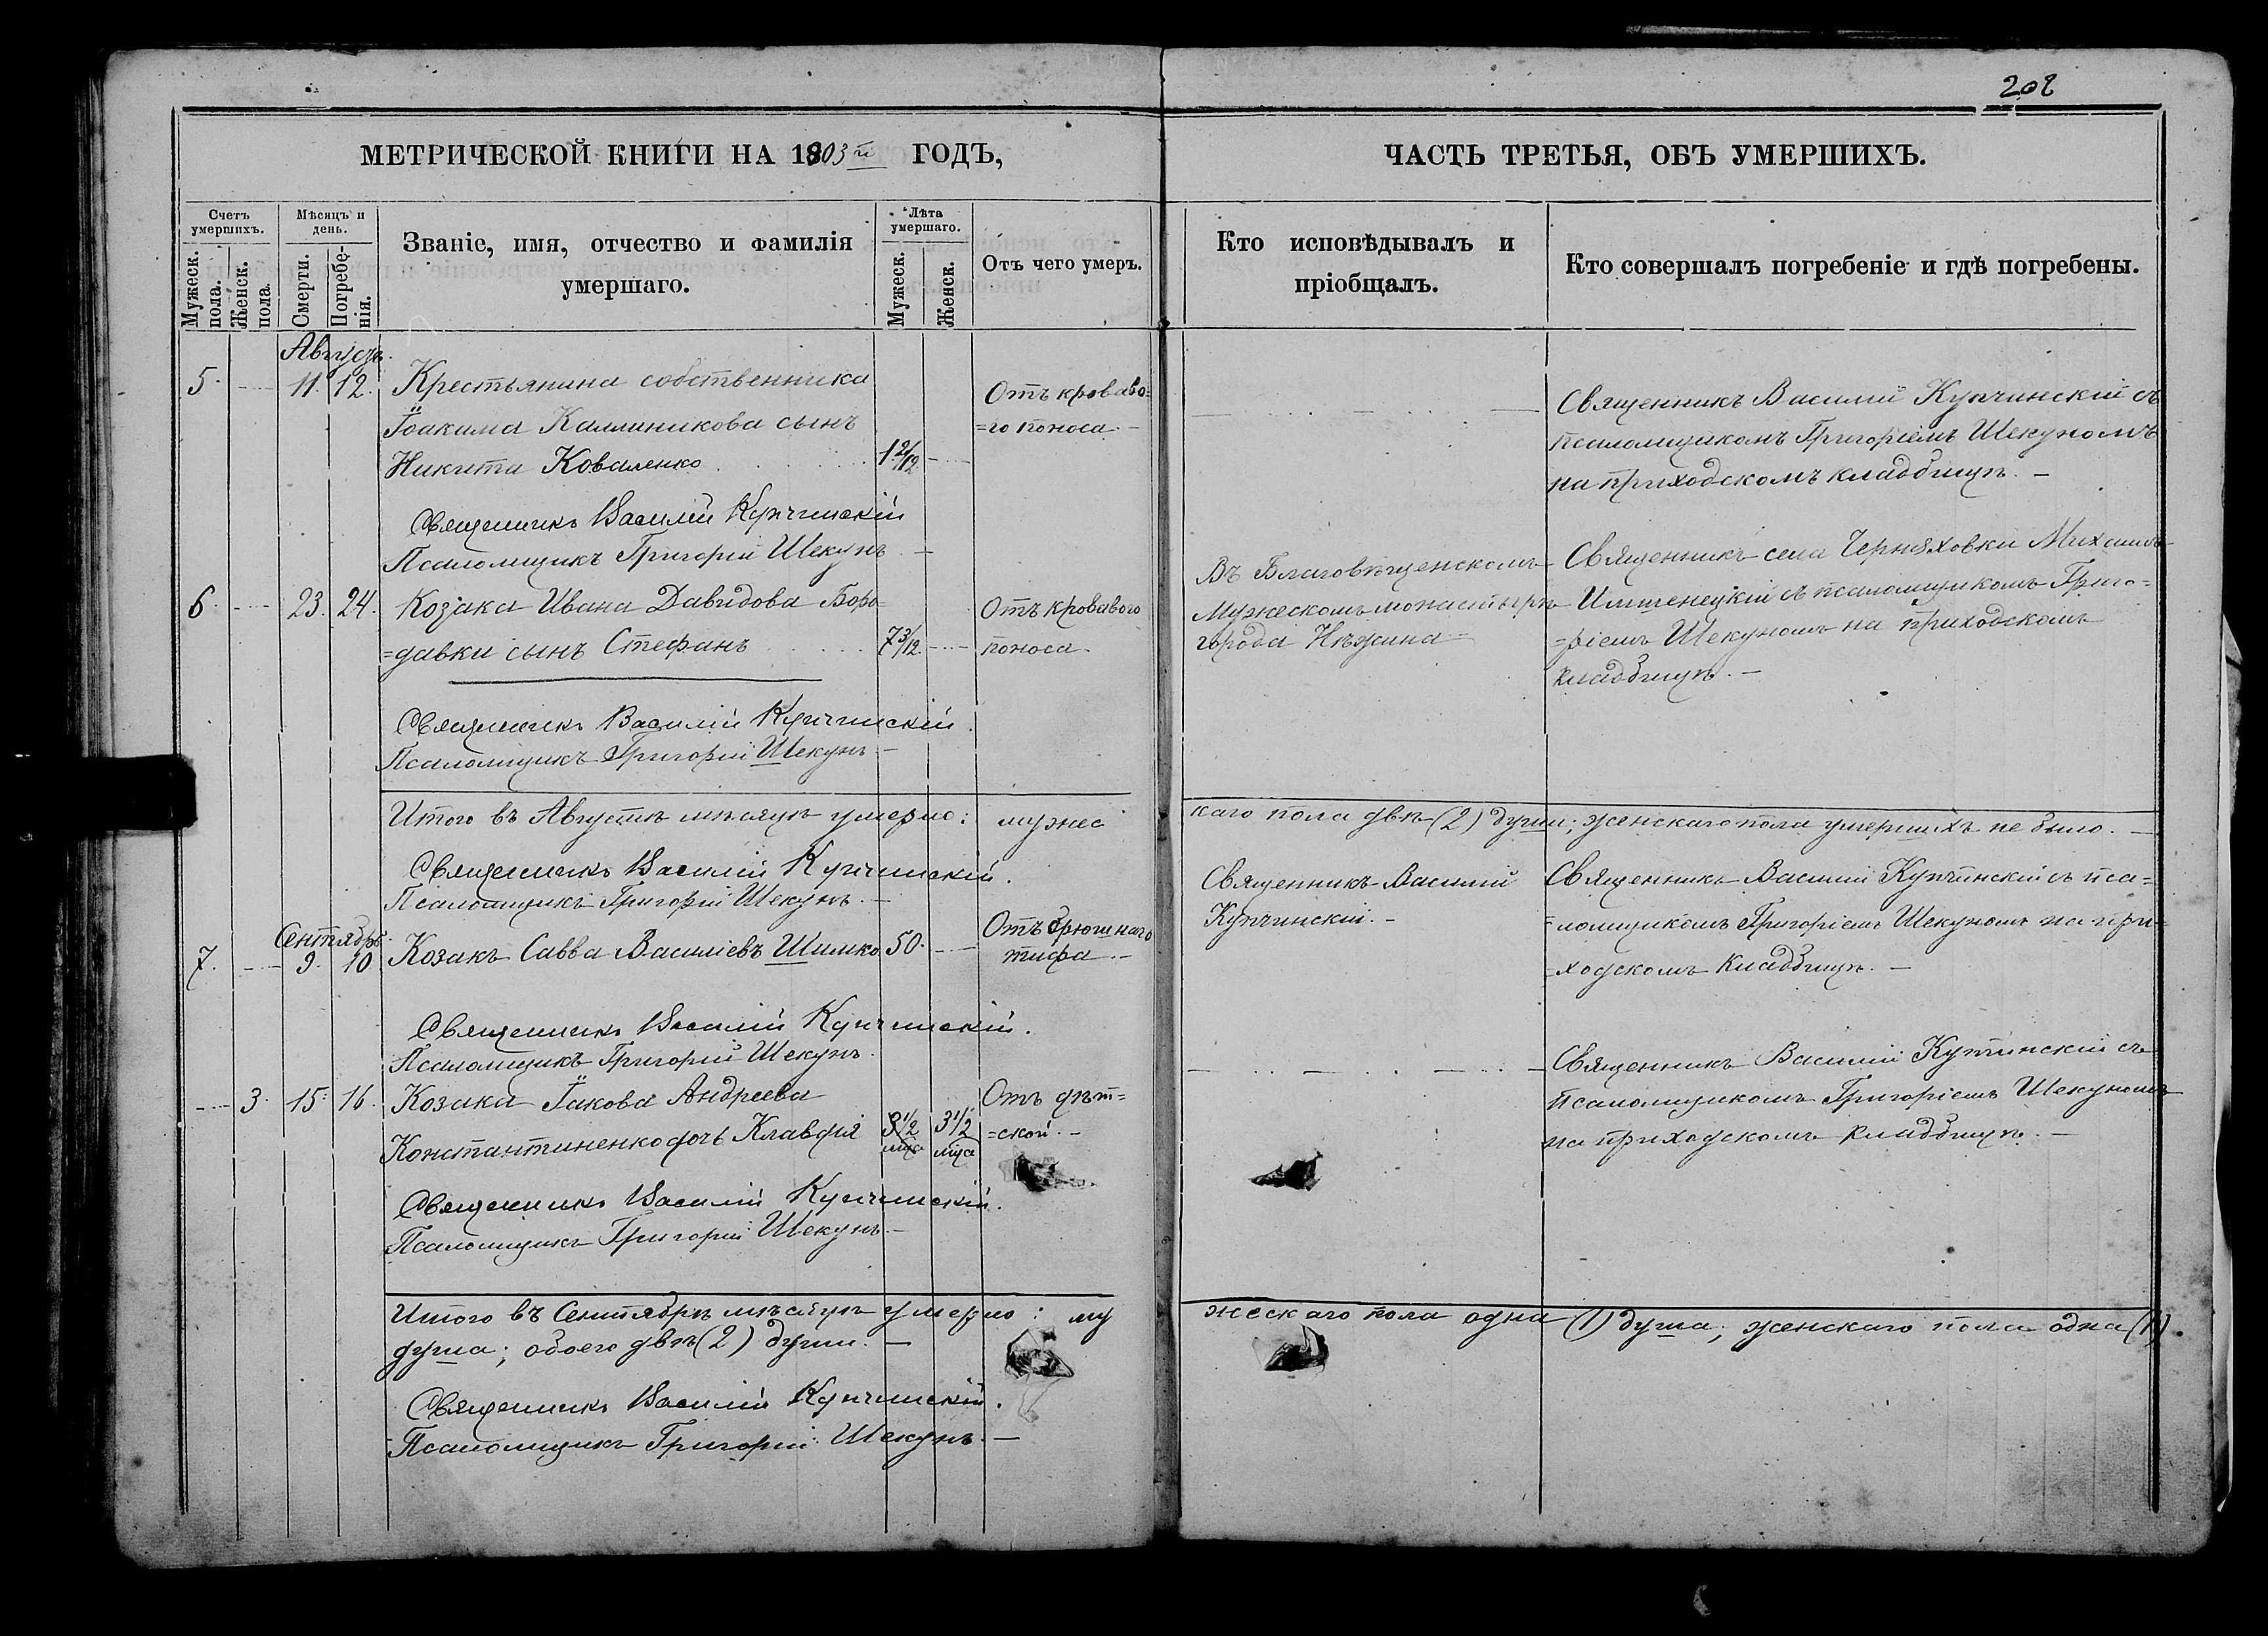 208
МЕТРИЧЕСКОЙ КНИГИ НА 1903й ГОДЪ,
ЧАСТЬ ТРЕТЬЯ, ОБЪ УМЕРШИХЪ.
Счетъ умершихъ.
Мужеск. пола.
Женск. пола.
Мѣсяцъ и день.
Смерти.
Погребенія.
Званіе, имя, отчество и фамилія
умершаго.
Лѣта умершаго.
Мужеск.
Женск.
Отъ чего умеръ.
Кто исповѣдывалъ и
пріобщалъ.
Кто совершалъ погребеніе и гдѣ погребены.
Августъ.
5. 11. 12. Крестьянина собственника
Іоакима Каллиникова сынъ
Никита Коваленко 1 2/12
Отъ кроваво=
=го поноса.
Священникъ Василій Купчинскій съ
псаломщикомъ Григоріемъ Шекуномъ
на приходскомъ кладбищѣ.
Священникъ Василій Купчинскій
Псаломщикъ Григорій Шекунъ.
6. 23. 24. Козака Ивана Давидова Боро=
=давки сынъ Стефанъ 7 3/12
Отъ кроваваго
поноса.
Въ Благовѣщенскомъ
Мужескомъ монастырѣ
города Нѣжина
Священникъ села Черняховки Михаилъ
Имшенецкій съ псаломщикомъ Григо=
=ріемъ Шекуномъ на приходскомъ
кладбищѣ.
Священникъ Василій Купчинскій.
Псаломщикъ Григорій Шекунъ
Итого въ Августѣ мѣсяцѣ умерло: мужес
каго пола двѣ (2) души; женскаго пола умершихъ не было.
Священникъ Василій Купчинскій.
Псаломщикъ Григорій Шекунъ.
Сентябрь.
7. 9. 10 Козакъ Савва Василіевъ Шимко 50.
Отъ брюшнаго
тифа.
Священникъ Василій
Купчинскій.
Священникъ Василій Купчинскій съ пса=
=ломщикомъ Григоріемъ Шекуномъ на при=
=ходскомъ кладбищѣ.
Священникъ Василій Купчинскій.
Псаломщикъ Григорій Шекунъ.
3. 15. 16. Козака Іакова Андреева
Константиненко дочь Клавдія 3 1/2 мца 3 1/2 мца
Отъ дѣт=
=ской.
Священникъ Василій Купчинскій съ
псаломщикомъ Григоріемъ Шекуномъ
на приходскомъ кладбищѣ.
Священникъ Василій Купчинскій.
Псаломщикъ Григорій Шекунъ.
Итого въ Сентябрѣ мѣсяцѣ умерло: му
жескаго пола одна (1) душа; женскаго пола одна (1)
душа; обоего двѣ (2) души.
Священникъ Василій Купчинскій.
Псаломщикъ Григорій Шекунъ.